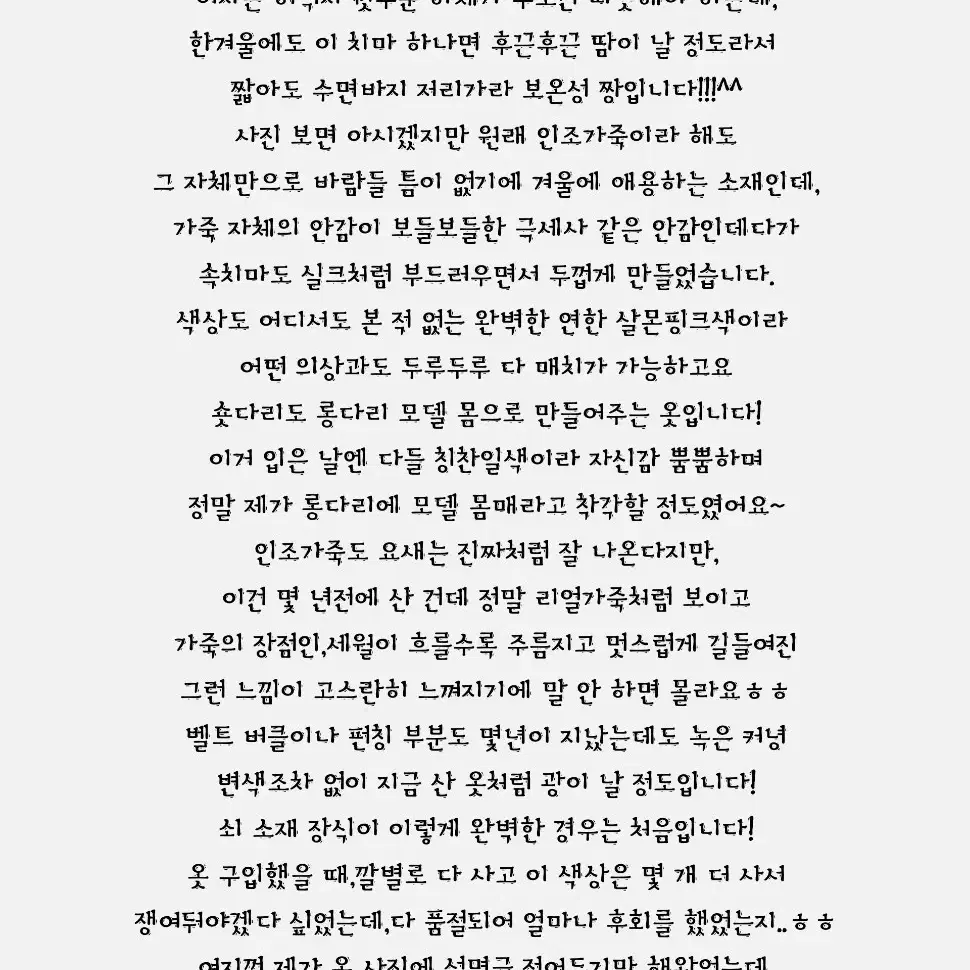 한겨울에도 이 치마 하나면 후끈후끈 땀이 날 정도라서
짧아도 수면바지 저리가라 보온성 짱입니다!!!^^
사진 보면 아시겠지만 원래 인조가죽이라 해도
그 자체만으로 바람들 틈이 없기에 겨울에 애용하는 소재인데,
가죽 자체의 안감이 보들보들한 극세사 같은 안감인데다가
속치마도 실크처럼 부드러우면서 두껍게 만들었습니다.
색상도 어디서도 본 적 없는 완벽한 연한 살몬핑크색이라
어떤 의상과도 두루두루 다 매치가 가능하고요
숏다리도 롱다리 모델 몸으로 만들어주는 옷입니다!
이거 입은 날엔 다들 칭찬일색이라 자신감 뿜뿜하며
정말 제가 롱다리에 모델 몸매라고 착각할 정도였어요~
인조가죽도 요새는 진짜처럼 잘 나온다지만,
이건 몇 년전에 산 건데 정말 리얼가죽처럼 보이고
가죽의 장점인,세월이 흐를수록 주름지고 멋스럽게 길들여진
그런 느낌이 고스란히 느껴지기에 말 안 하면 몰라요ㅎㅎ
벨트 버클이나 펀칭 부분도 몇년이 지났는데도 녹은 커녕
변색조차 없이 지금 산 옷처럼 광이 날 정도입니다!
쇠 소재 장식이 이렇게 완벽한 경우는 처음입니다!
옷 구입했을 때,깔별로 다 사고 이 색상은 몇 개 더 사서
쟁여둬야겠다 싶었는데,다 품절되어 얼마나 후회를 했었는지..ㅎㅎ
여지껏 제가 옷 사진에 설명글 적어두기만 해왔었는데